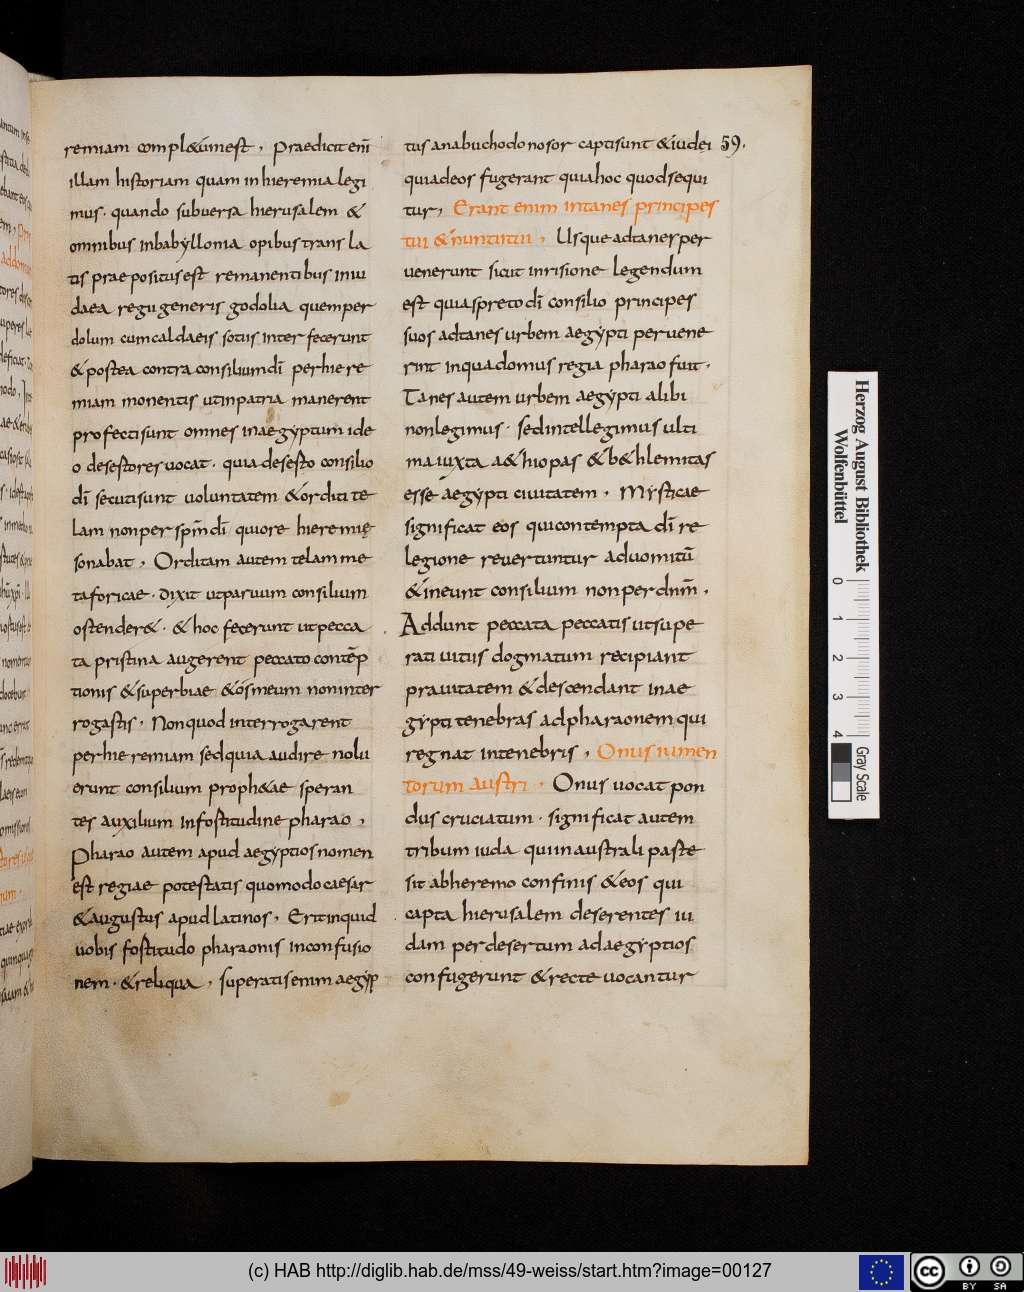 remiam compl&umest, Praedicit enī
illam historiam quam in hieremia legi
mus. quando subuersa hierusalem &
omnibus inbabyllonia opibus trans la
tis prae positus est remanentibus iniu
daea regii generis godolia quem per
dolum cum caldaeis sociis inter fecerunt
& postea contra consilium dī per hie re
miam monentis ut in patria manerent
profecti sunt omnes in aegyptum ide
o desertores uocat. quia deserto consilio
dī secuti sunt uoluntatem & orditi te
lam non per spm̄ dī qui ore hieremię
sonabat, Orditam autem telam me
taforicae. dixit ut paruum consilium
ostender&. & hoc fecerunt ut pecca
ta pristina augerent peccato contēp
tionis & superbiae & os meum non inter
rogastis, Non quod interrogarent
per hieremiam sed quia audire nolu
erunt consilium proph&ae speran
tes auxilium in fostitudine pharao,
Pharao autem apud aegyptios nomen
est regiae potestatis quomodo caesar
& augustus apud latinos, Erit inquid
uobis fostitudo pharaonis in confusio
nem. & reliqua, superatis enim aegyp
tiis a nabuchodonosor capti sunt & iudei 59.
qui ad eos fugerant qui a hoc quod sequi
tur, Erant enim in tanes principes
tui & nuntii tui, Usque ad tanes per
uenerunt sicut in risione legendum
est quia spreto dī consilio principes
suos ad tanes urbem aegypti peruene
rint in qua domus regia pharao fuit.
Tanes autem urbem aegypti alibi
non legimus. sed intellegimus ulti
ma iuxta a&hiopas & b&hlemitas
esse aegypti ciuitatem, Mysticae
significat eos qui contempta dī re
legione reuertuntur ad uomitū
& ineunt consilium non per dnm̄.
Addunt peccata peccatis ut supe
rati uitiis dogmatum recipiant
prauitatem & descendant in ae
gypti tenebras ad pharaonem qui
regnat in tenebris, Onus iumen
torum austri, Onus uocat pon
dus cruciatum. significat autem
tribum iuda qui in australi paste
sit ab heremo confinis & eos qui
capta hierusalem deserentes iu
dam per desertum ad aegyptios
confugerunt & recte uocantur
Herzog August Bibliothek
Wolfenbüttel
0 1 2 3 4
Gray Scale
(c) HAB http://diglib.hab.de/mss/49-weiss/start.htm?image=00127
cc BY SA